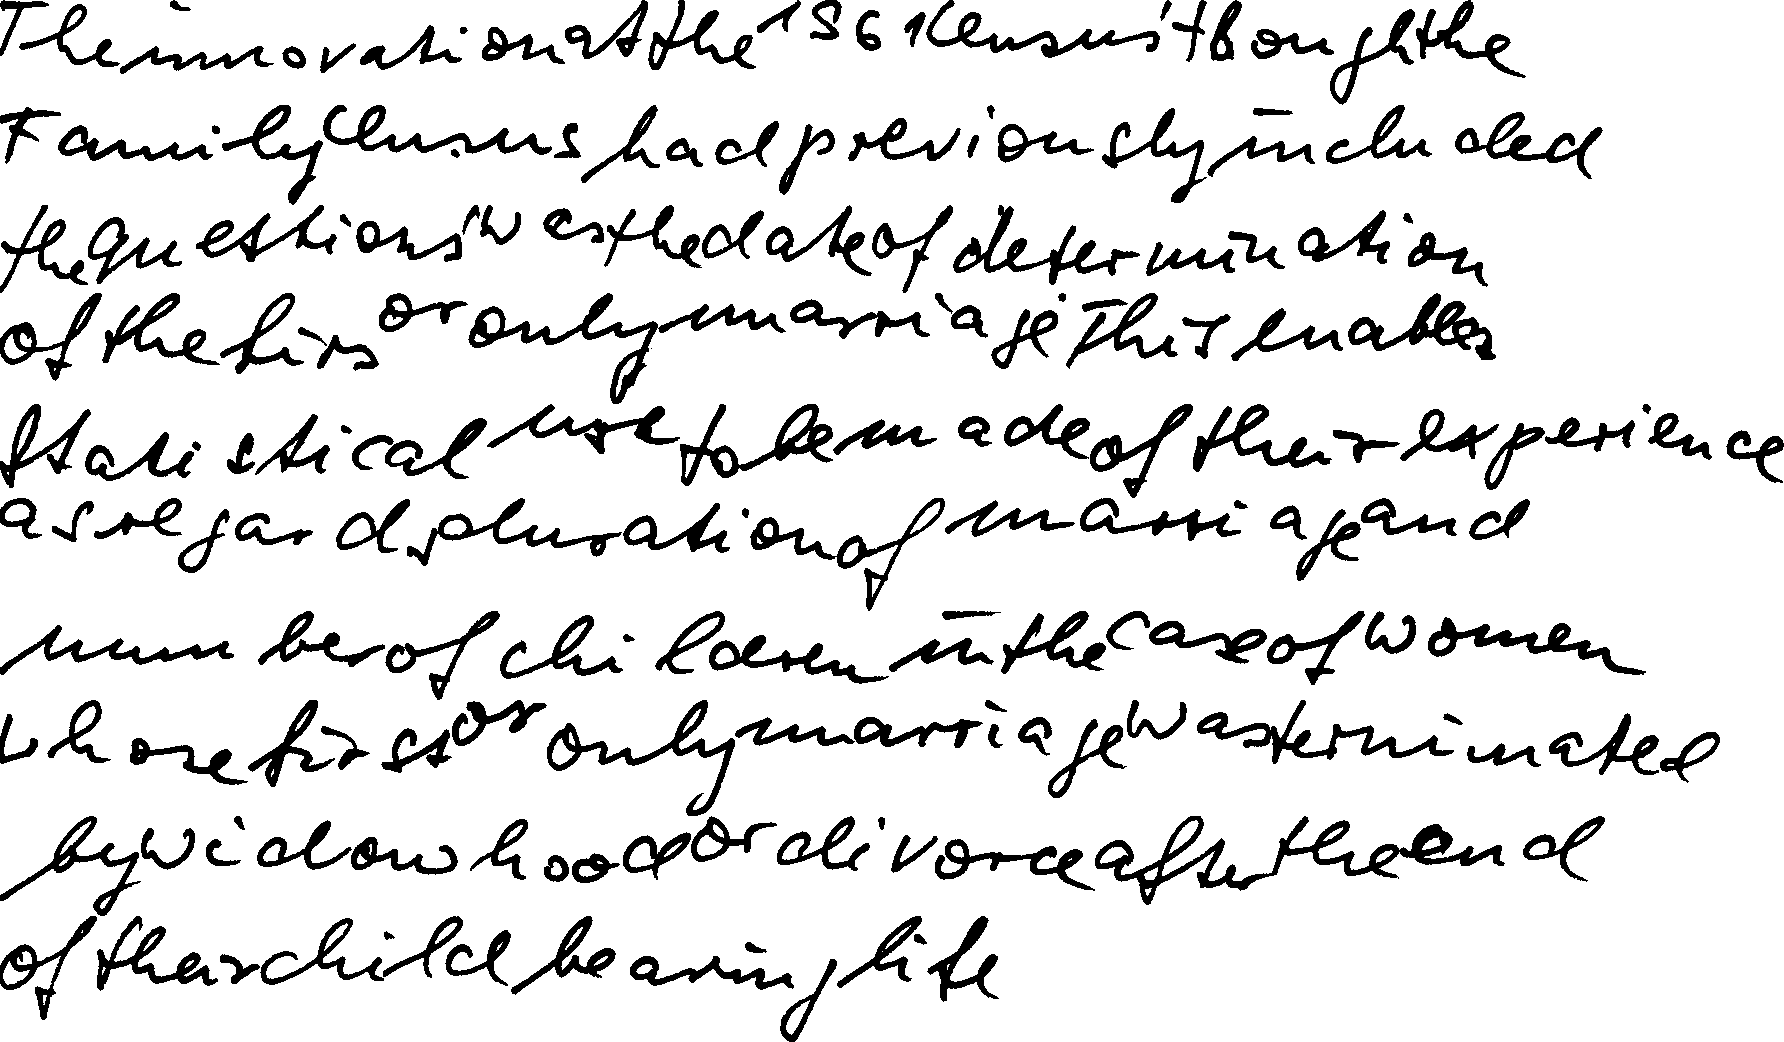 The innovation at the 1961 Census 'though the
Family Census had previously included
the questions' was the date of determination
of the firs or only marriage' This enables
Statistical use to be made of their experience
as regards duration of marriage and
number of children in the case of women
whose first or only marriage was terminated
by widowhood or divorce after the end
of their child bearing life